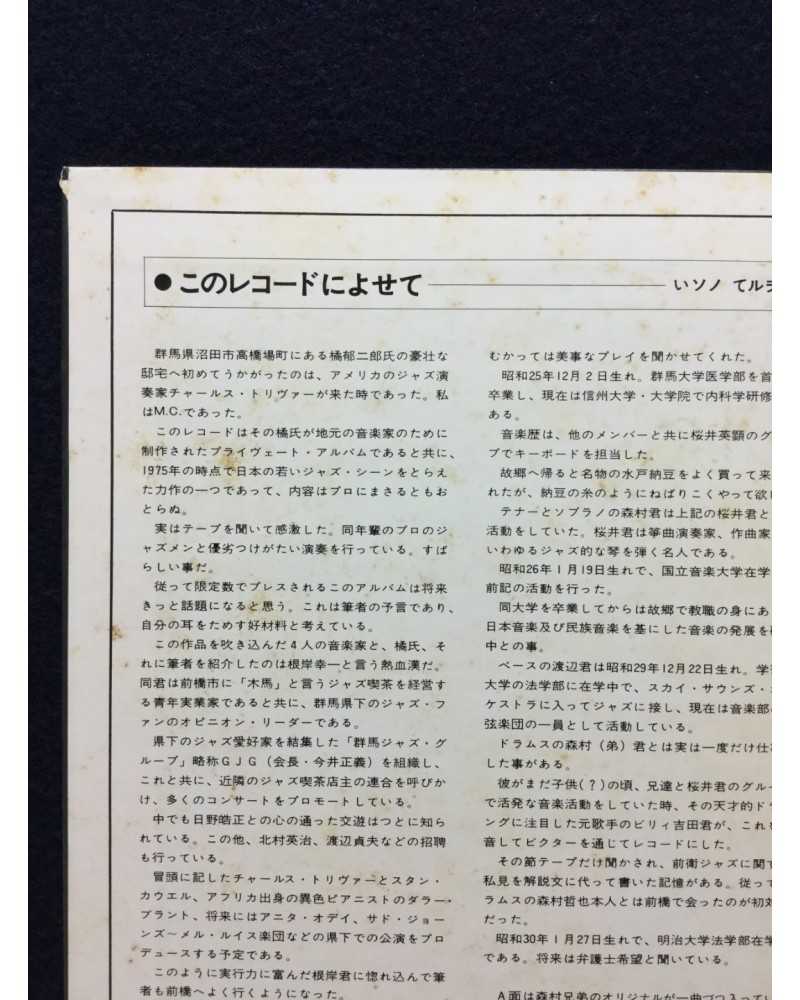 ●このレコードによせて
いソノ てルヲ
群馬県沼田市高橋場町にある橘郁二郎氏の豪壮な
邸宅へ初めてうかがったのは、アメリカのジャズ演
奏家チャールス・トリヴァーが来た時であった。私
はM.C.であった。
このレコードはその橘氏が地元の音楽家のために
制作されたプライヴェート・アルバムであると共に、
1975年の時点で日本の若いジャズ・シーンをとらえ
た力作の一つであって、内容はプロにまさるともお
とらぬ。
実はテープを聞いて感激した。同年輩のプロのジ
ャズメンと優劣つけがたい演奏を行っている。すば
らしい事だ。
従って限定数でプレスされるこのアルバムは将来
きっと話題になると思う。これは筆者の予言であり、
自分の耳をためす好材料と考えている。
この作品を吹き込んだ4人の音楽家と、橘氏、そ
れに筆者を紹介したのは根岸幸一と言う熱血漢だ。
同君は前橋市に「木馬」と言うジャズ喫茶を経営す
る青年実業家であると共に、群馬県下のジャズ・フ
ァンのオピニオン・リーダーである。
県下のジャズ愛好家を結集した「群馬ジャズ・グ
ループ」略称GJG(会長・今井正義)を組織し、
これと共に、近隣のジャズ喫茶店主の連合を呼びか
け、多くのコンサートをプロモートしている。
中でも日野皓正との心の通った交遊はつとに知ら
れている。この他、北村英治、渡辺貞夫などの招聘
も行っている。
冒頭に記したチャールス・トリヴァーとスタン・
カウエル、アフリカ出身の異色ピアニストのダラー・
ブラント、将来にはアニタ・オデイ、サド・ジョー
ンズ〜メル・ルイス楽団などの県下での公演をプロ
デュースする予定である。
このように実行力に富んだ根岸君に惚れ込んで筆
者も前橋へよく行くようになった。
むかっては美事なプレイを聞かせてくれた。
昭和25年12月2日生れ。群馬大学医学部を首
卒業し、現在は信州大学・大学院で内科学研修
ある。
音楽歴は、他のメンバーと共に桜井英顕のグ
プでキーボードを担当した。
故郷へ帰ると名物の水戸納豆をよく買って来
れたが、納豆の糸のようにねばりこくやって欲
テナーとソプラノの森村君は上記の桜井君と
活動をしていた。桜井君は箏曲演奏家、作曲家
いわゆるジャズ的な琴を弾く名人である。
昭和26年1月19日生れで、国立音楽大学在学
前記の活動を行った。
同大学を卒業してからは故郷で教職の身にあ
日本音楽及び民族音楽を基にした音楽の発展を
中との事。
ベースの渡辺君は昭和29年12月22日生れ。学
大学の法学部に在学中で、スカイ・サウンズ・
ケストラに入ってジャズに接し、現在は音楽部
弦楽団の一員として活動している。
ドラムスの森村(弟)君とは実は一度だけ仕
した事がある。
彼がまだ子供(?)の頃、兄達と桜井君のグルー
で活発な音楽活動をしていた時、その天才的ド
ングに注目した元歌手のビリィ吉田君が、これ
音してビクターを通じてレコードにした。
その節テープだけ聞かされ、前衛ジャズに関
私見を解説文に代って書いた記憶がある。従っ
ラムスの森村哲也本人とは前橋で会ったのが初
だった。
昭和30年1月27日生れで、明治大学法学部在学
である。将来は弁護士希望と聞いている。
A面は森村兄弟のオリジナルが一曲づつ入ってい